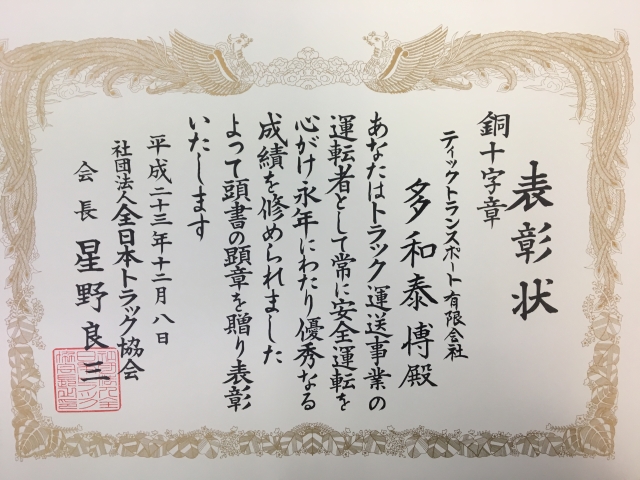 表彰状
銅十字章
ティックトランスポート有限会社
多和泰博殿
あなたはトラック運送事業の
運転者として常に安全運転を
心がけ永年にわたり優秀なる
成績を修められました
よって頭書の顕章を贈り表彰
いたします
平成二十三年十二月八日
社団法人全日本トラック協会
会長 星野良三